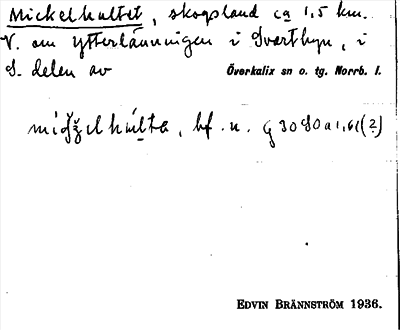 Mickelhultet, skogsland ca 1,5 km.
V. om Ytterlänningen i Svartbyn, i
S. delen av Överkalix sn o. tg. Norrb. l.
bf. u.
EDVIN BRÄNNSTRÖM 1936.